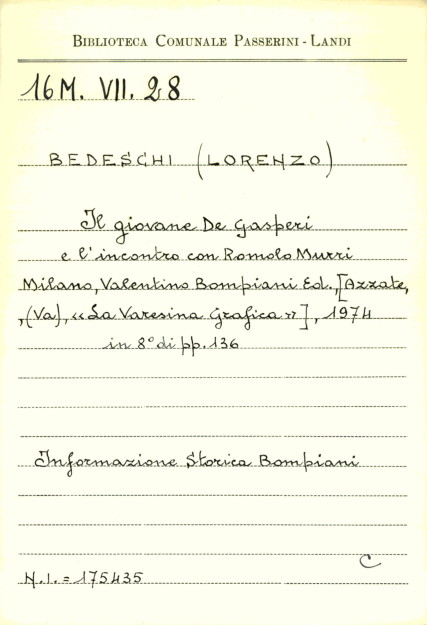 BIBLIOTECA COMUNALE PASSERINI - LANDI
16 M. VII. 28
BEDESCHI (LORENZO)
Il giovane De Gasperi
e l'incontro con Romolo Murri
Milano, Valentino Bompiani Ed., [Azzate,
,(Va), «La Varesina Grafica»], 1974
in 8° di pp. 136
Informazione Storica Bompiani
C
N.I. = 175435